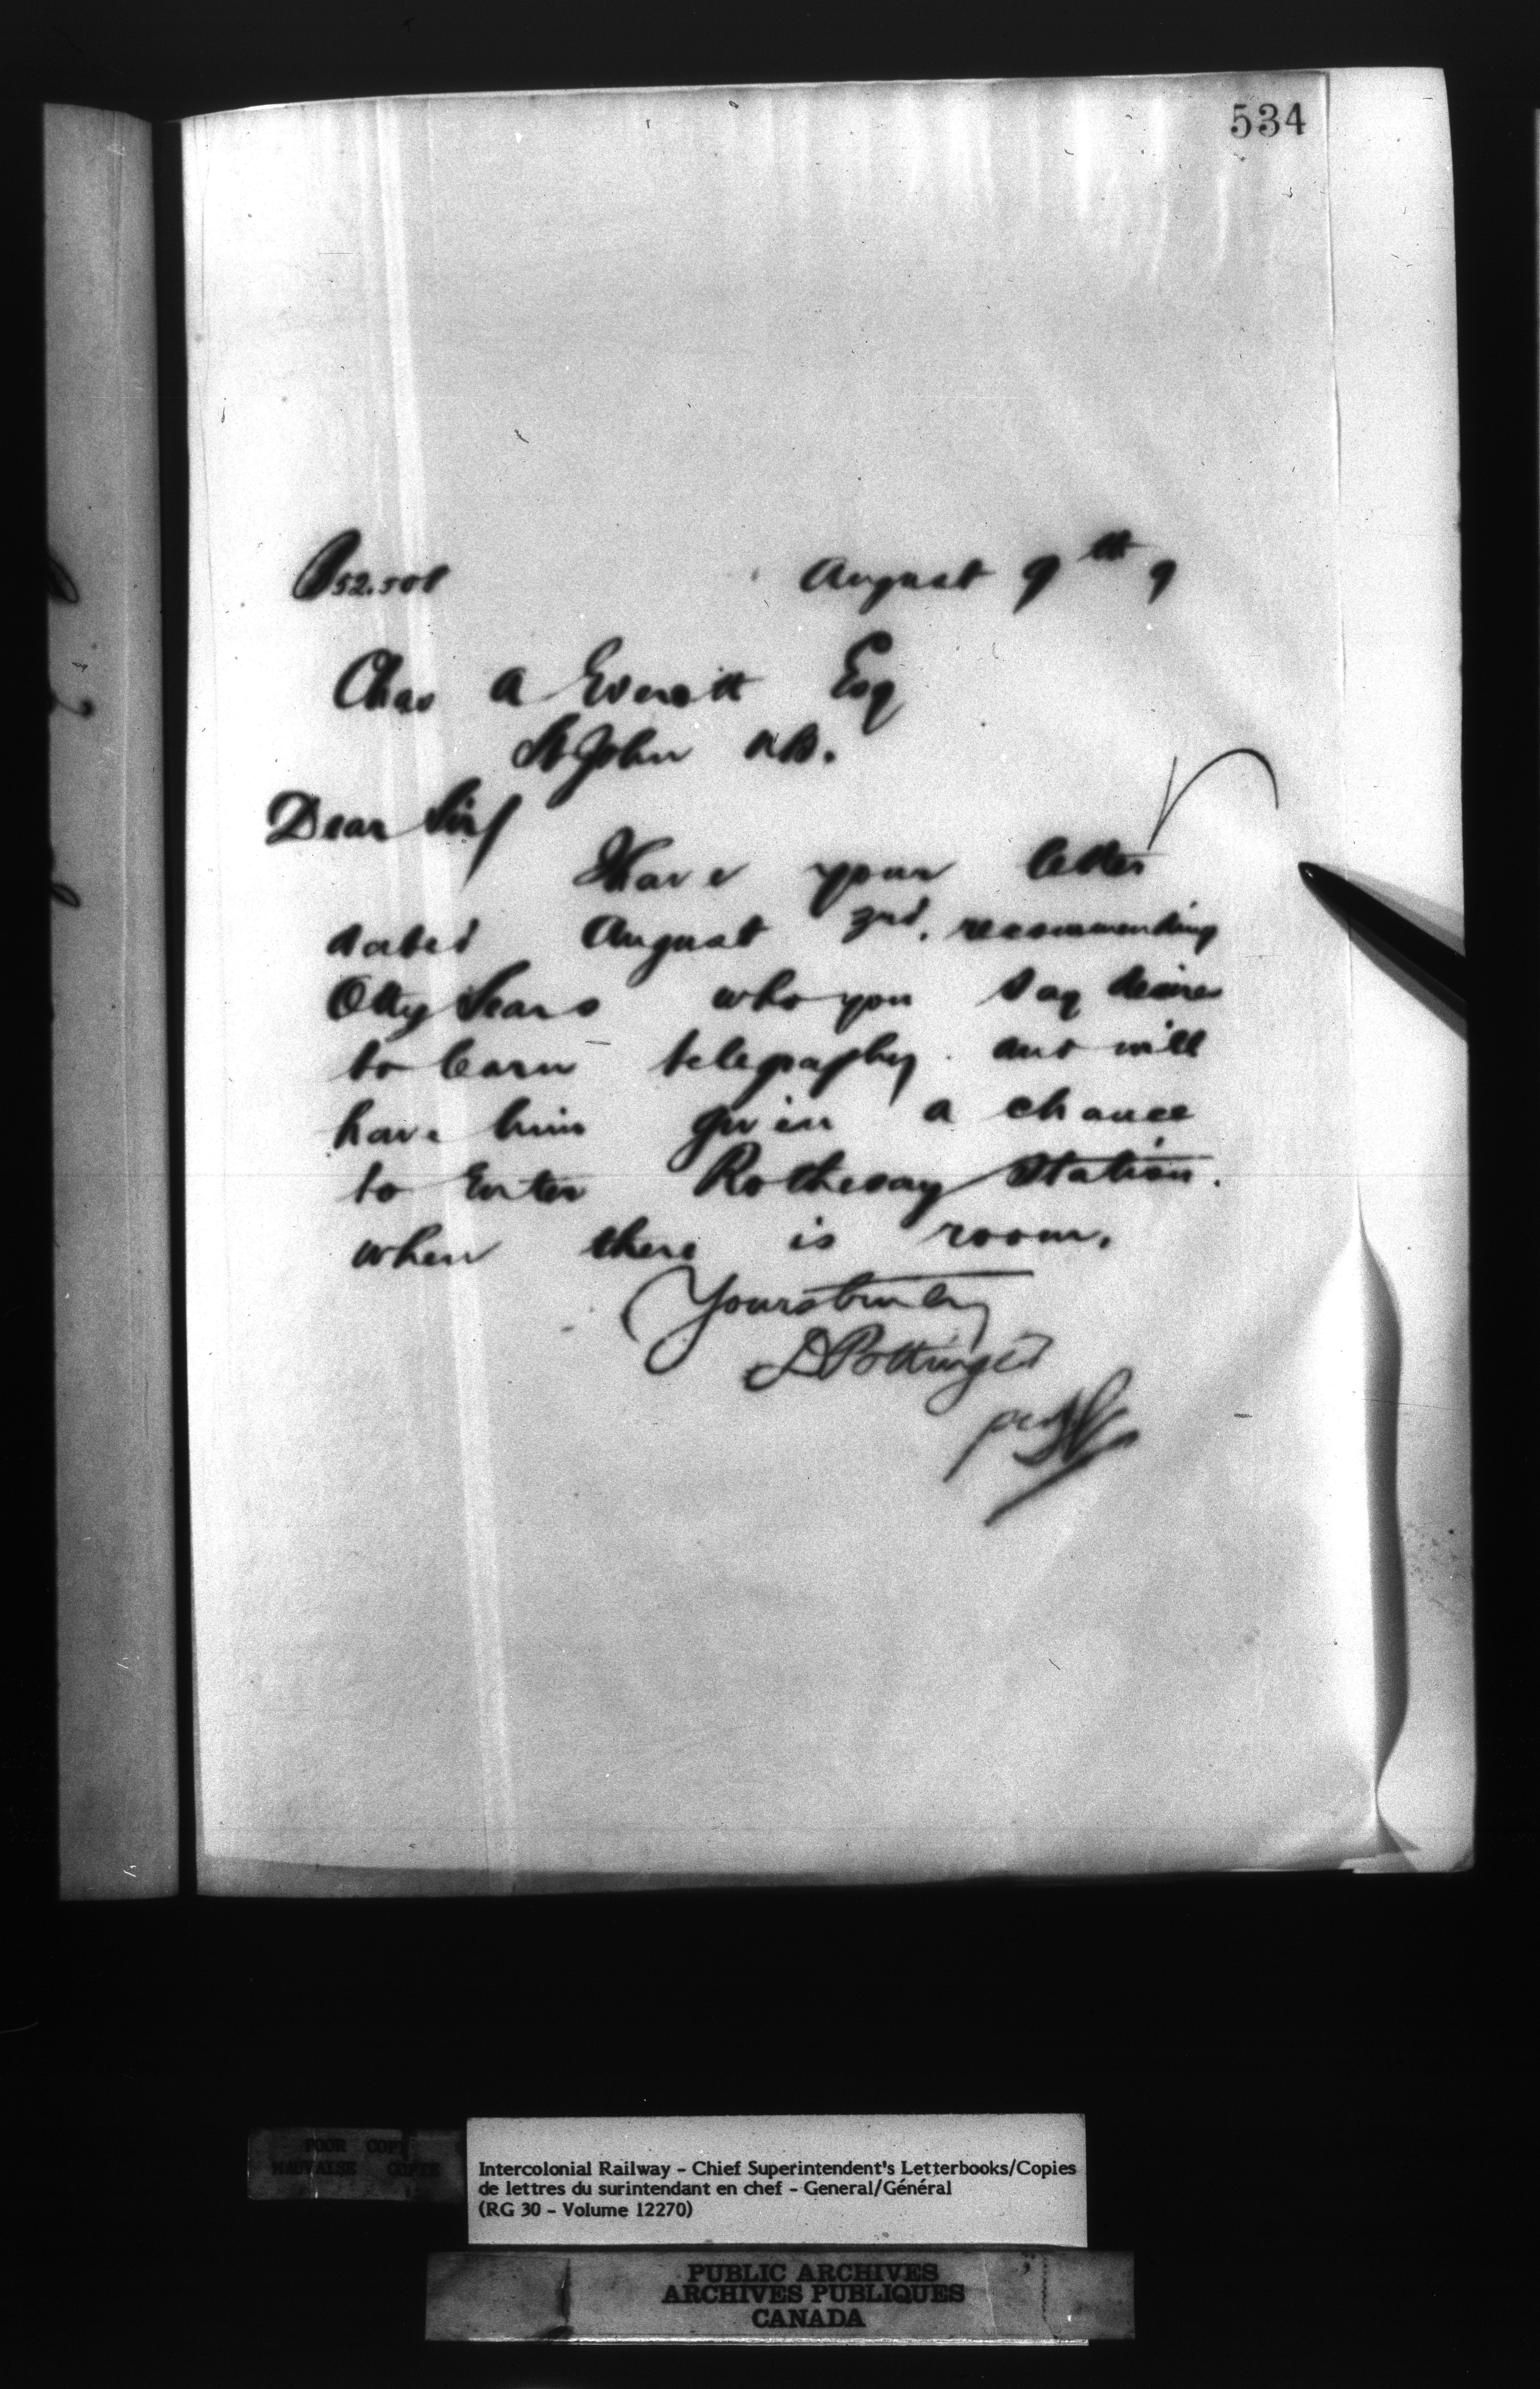 534
52.508 August 9th 9
Chas A Everett Esq
St John NB.
Dear Sir/
Have your letter
dated August 2nd, recommending
Otty Sears who you say desires
to learn telegraphy. and will
have him given a chance
to Enter Rothesay Station.
when there is room.
Yours truly
D Pottinger
per
POOR COPY
MAUVAISE COPIE
Intercolonial Railway - Chief Superintendent's Letterbooks/Copies
de lettres du surintendant en chef - General/Général
(RG 30 - Volume 12270)
PUBLIC ARCHIVES
ARCHIVES PUBLIQUES
CANADA